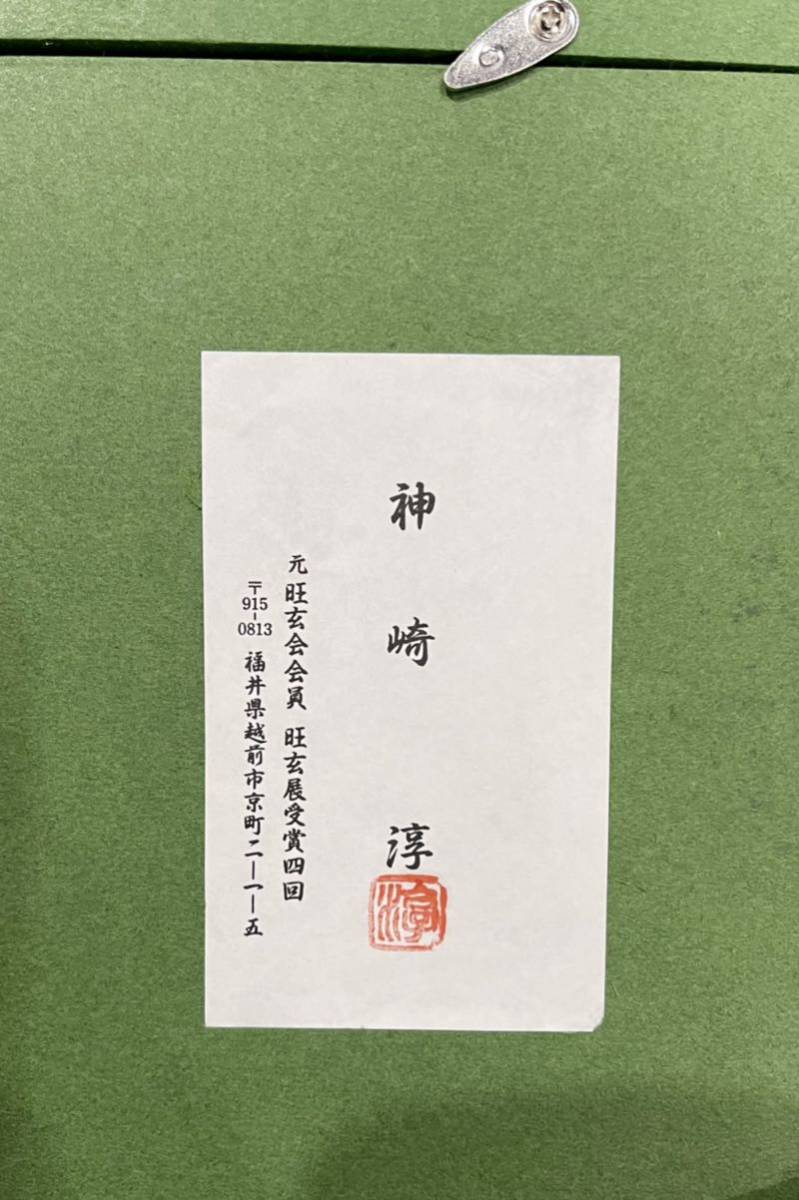 神崎 淳
淳
元 旺玄会会員 旺玄展受賞四回
〒915-0813 福井県越前市京町二ー一ー五